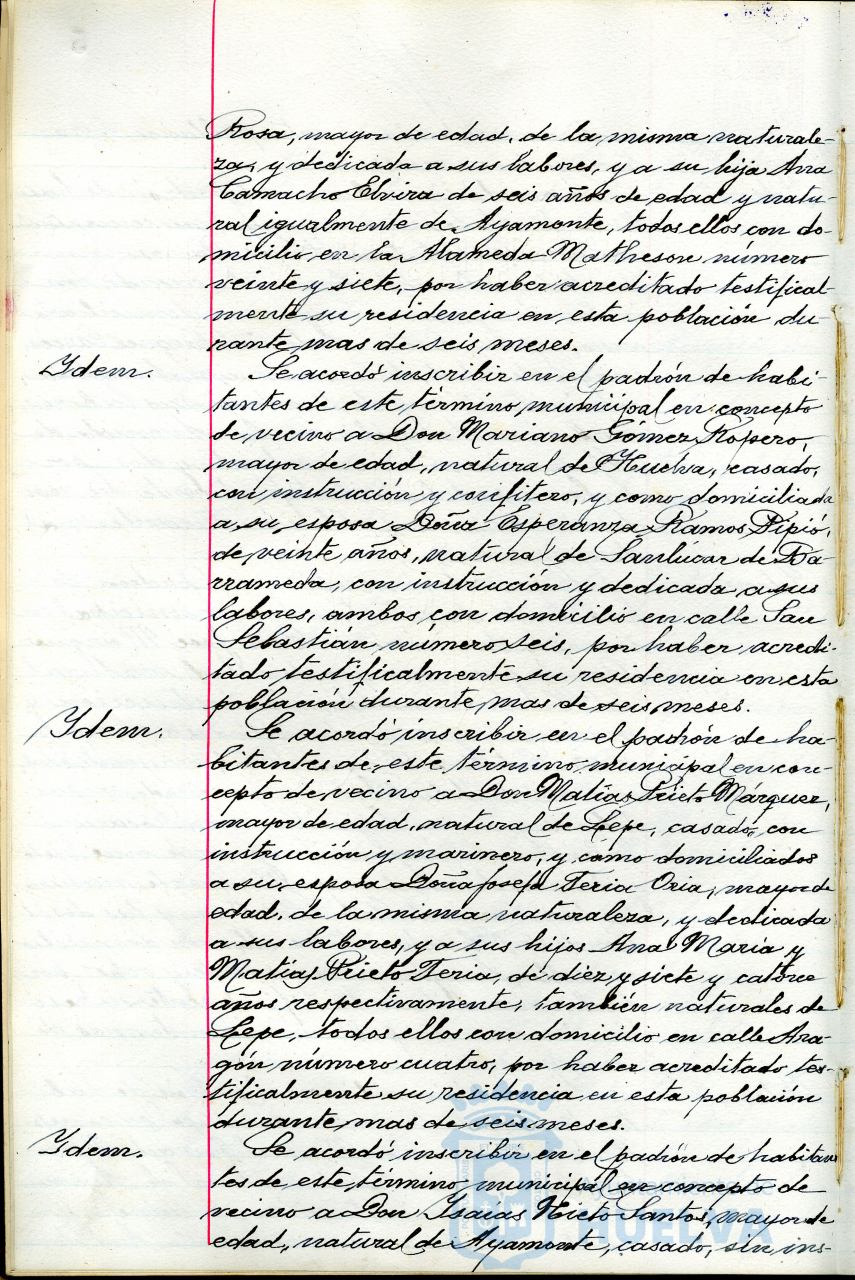 Rosa, mayor de edad, de la misma naturale-
za, y dedicada a sus labores, y a su hija Ana
Camacho Elvira de seis años de edad y natu-
ral igualmente de Ayamonte, todos ellos con do-
micilio en la Alameda Matheson número
veinte y siete, por haber acreditado testifical-
mente su residencia en esta población du-
rante mas de seis meses.
Ydem.
Se acordó inscribir en el padrón de habi-
tantes de este término municipal en concepto
de vecino a Don Mariano Gómez Ropero,
mayor de edad, natural de Huelva, casado,
con instrucción y confitero, y como domiciliada
a su esposa Doña Esperanza Ramos Pipió,
de veinte años, natural de Sanlúcar de Ba-
rrameda, con instrucción y dedicada a sus
labores, ambos con domicilio en calle San
Sebastián número seis, por haber acredi-
tado testificalmente su residencia en esta
población durante mas de seis meses.
Ydem.
Se acordó inscribir en el padrón de ha-
bitantes de este término municipal en con-
cepto de vecino a Don Matías Prieto Márquez,
mayor de edad, natural de Lepe, casado, con
instrucción y marinero, y como domiciliados
a su esposa Doña Josefa Feria Oria, mayor de
edad, de la misma naturaleza, y dedicada
a sus labores, y a sus hijos Ana María y
Matías Prieto Feria, de diez y siete y catorce
años respectivamente, también naturales de
Lepe, todos ellos con domicilio en calle Ara-
gón número cuatro, por haber acreditado tes-
tificalmente su residencia en esta población
durante mas de seis meses.
Ydem.
Se acordó inscribir en el padrón de habitan-
tes de este término municipal en concepto de
vecino a Don Isaías Nieto Santos, mayor de
edad, natural de Ayamonte, casado, sin ins-
HUELVA